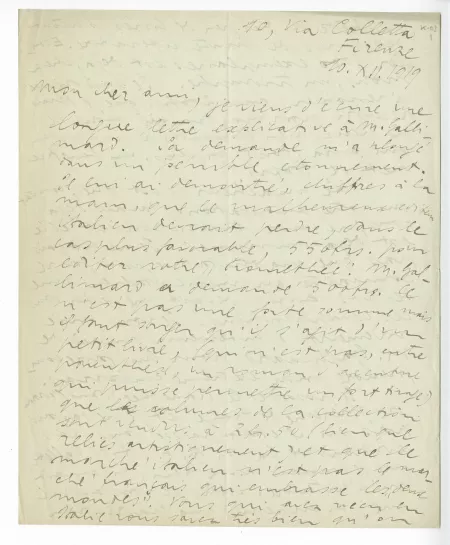 10, Via Colletta
Firenze
10. XII 1919
Mon cher ami,
je viens d'écrire une
longue lettre explicative à M. Galli-
mard. Sa demande m'a plongé
dans un pénible étonnement.
Je lui ai démontré, chiffres à la
main, que le malheureux
italien devrait perdre, dans le
cas plus favorable, 550 frs. pour
éditer votre Prométhée! M. Gal-
limard a demandé 500 frs. Ce
n'est pas une forte somme mais
il faut songer qu'il s'agit d'un
petit livre, (qui n'est pas, entre
parenthèses, un roman d'aventure
qui puisse permettre un fort tirage)
que les volumes de la collection
sont vendus à (bien que
reliés artistiquement) et que le
marché italien n'est pas le mar-
ché français qui embrasse les deux
mondes. Vous qui avez vécu en
Italie vous savez très bien qu'on